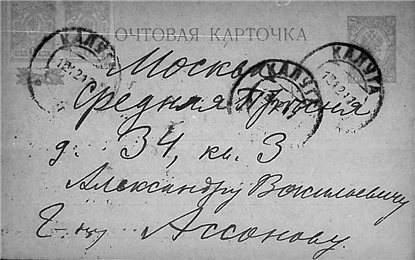 ПОЧТОВАЯ КАРТОЧКА
КАЛУГА
КАЛУГА
КАЛУГА
Москва
Средняя Пресня
д. 34, кв. 3
Александру Васильевичу
Г-ну Ассонову.